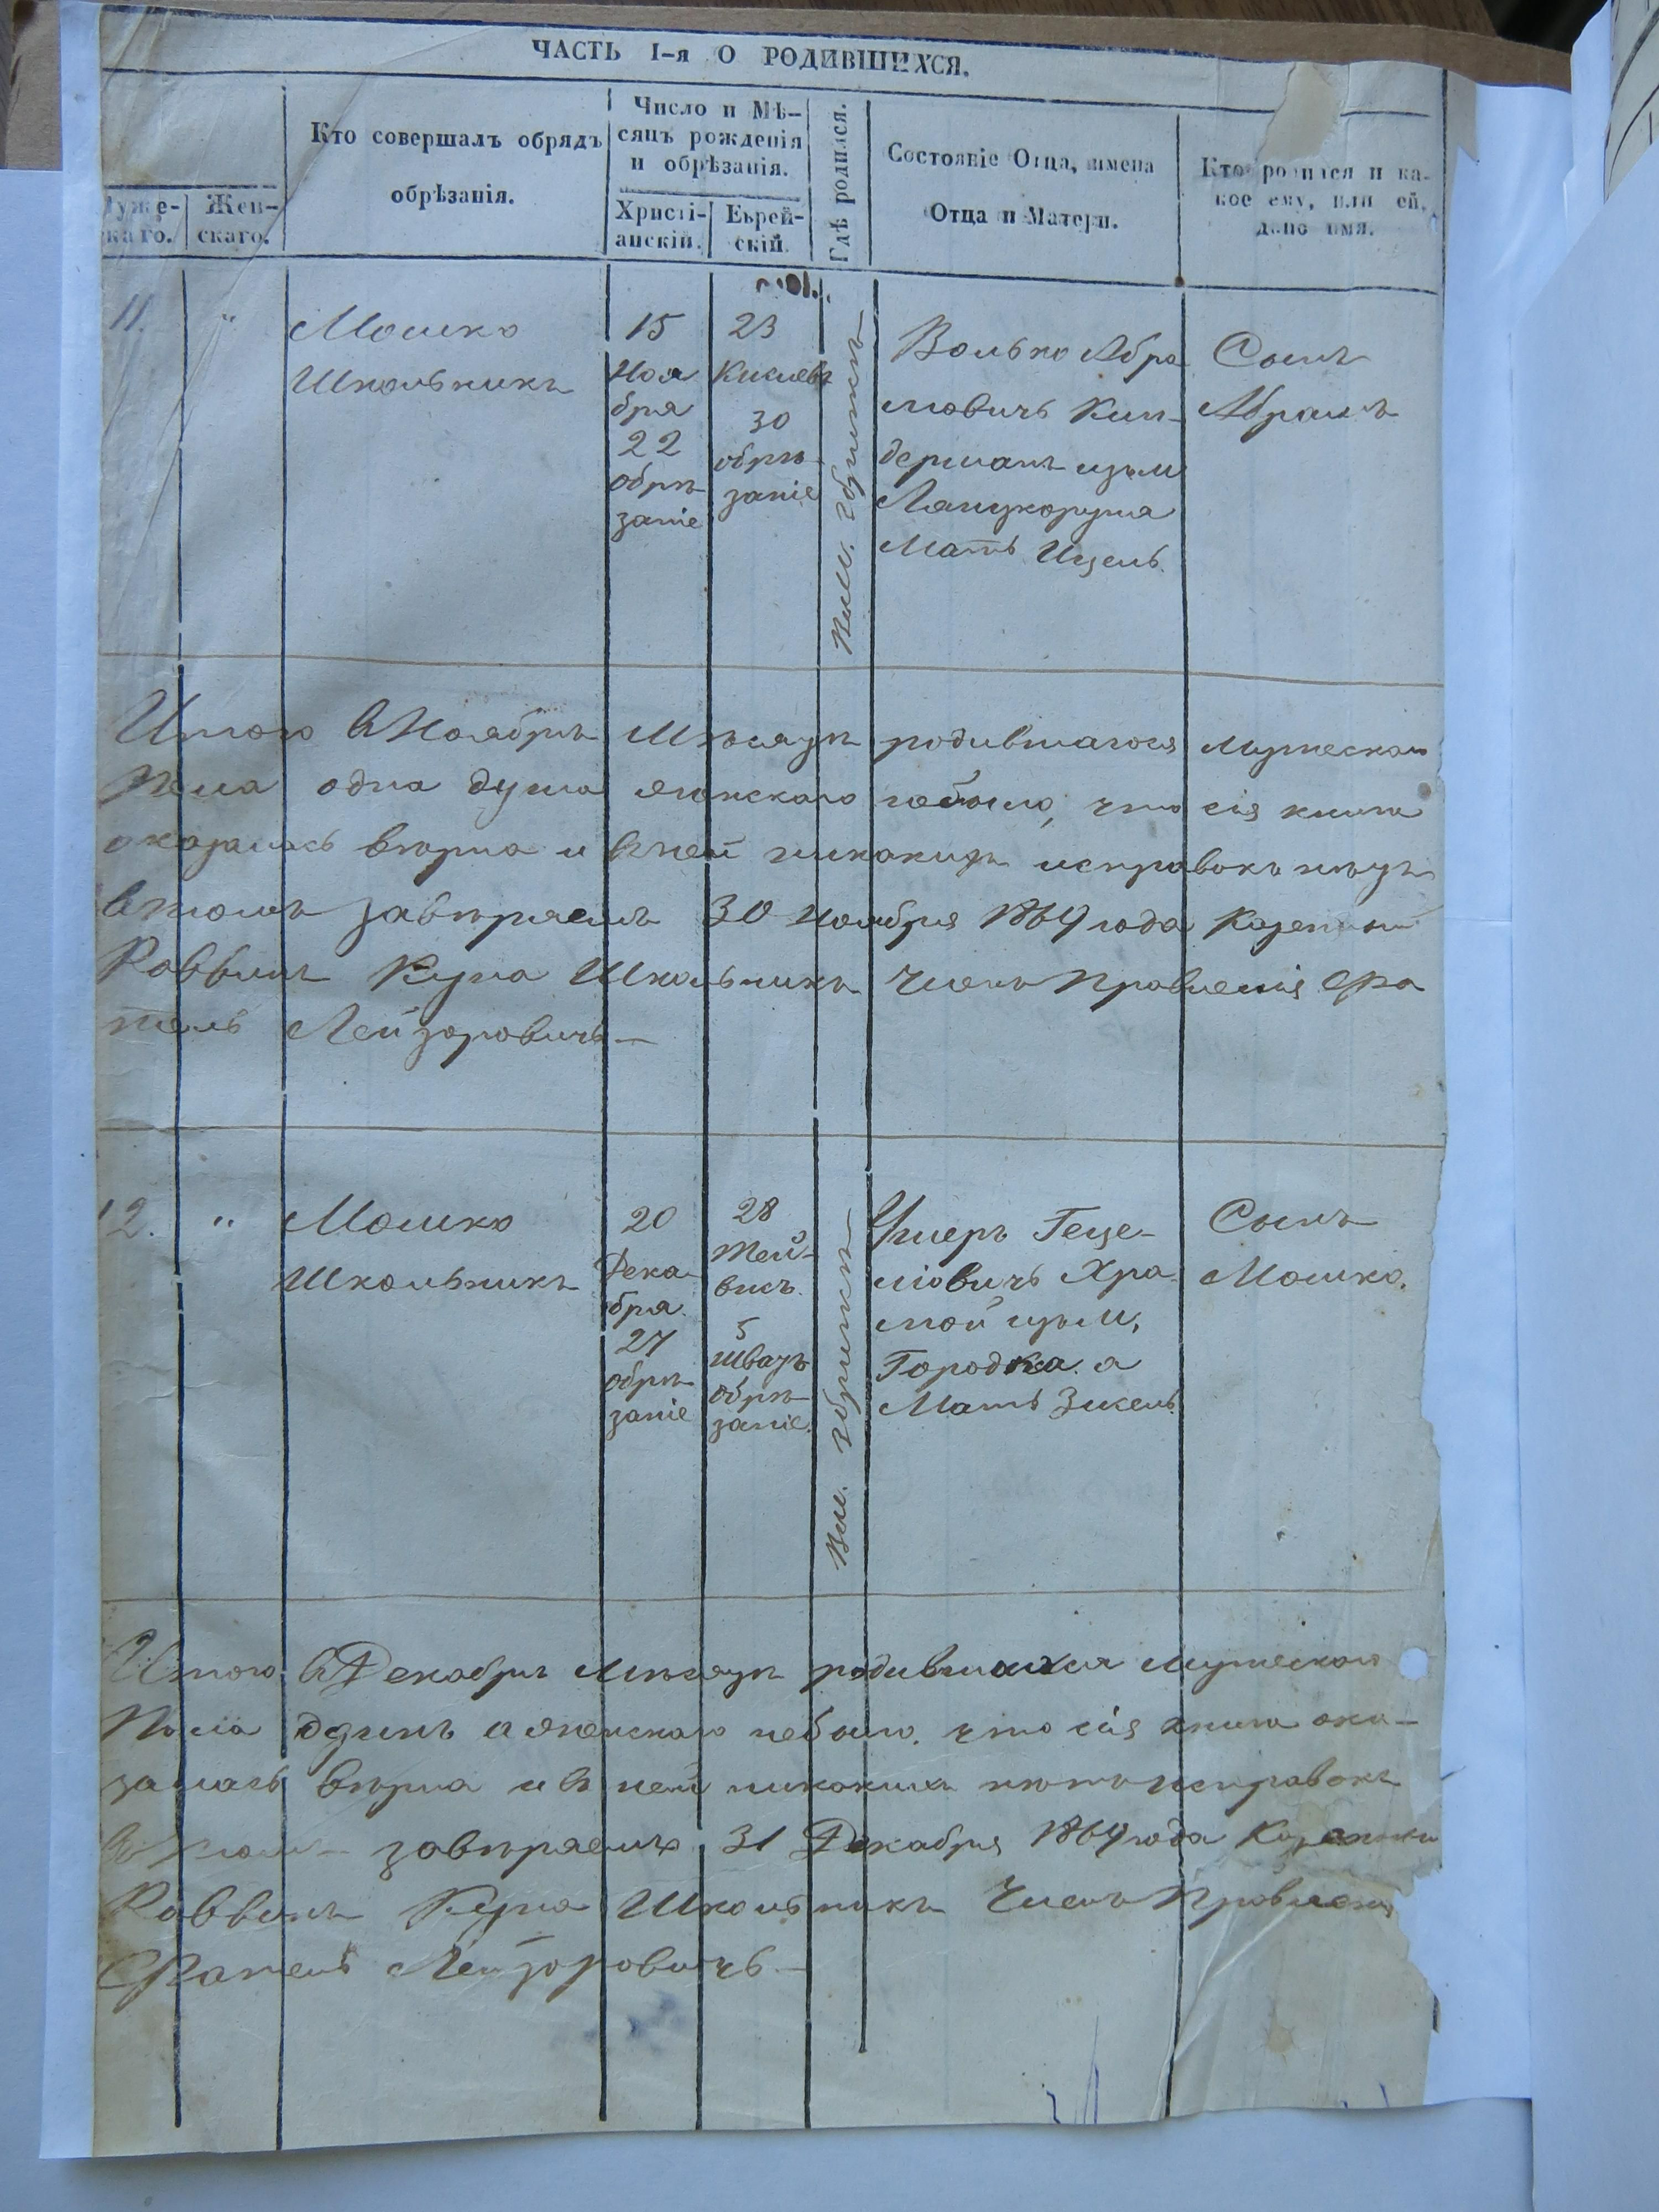 ЧАСТЬ I-я О РОДИВШИХСЯ.
Муже-
скаго.
Жен-
скаго.
Кто совершалъ обрядъ
обрѣзанія.
Число и Мѣ-
сяцъ рожденія
и обрѣзанія.
Христі-
анскій.
Еврей-
скій.
Гдѣ родился.
Состояніе Отца, имена
Отца и Матери.
Кто родился и ка-
кое ему, или ей,
дано имя.
11.
"
Мошко
Школьникъ
15
Ноя
бря
22
обрѣ-
заніе
23
Кислевъ
30
обрѣ-
заніе
Волько Абра
мовичъ Кин-
дерманъ изъ м
Лянцкоруня
Мать
Сынъ
Абрамъ
Итого в Ноябрѣ Мѣсяцѣ родившагося мужескаго
Пола одна душа женскаго небыло, что сія книга
оказалась вѣрна и в ней никакихъ исправокъ нѣтъ
в томъ завѣряемъ 30 Ноября 1869 года Казенный
Раввинъ Школьникъ Членъ Правленія Фра
тель Лейзоровичъ
12.
"
Мошко
Школьникъ
20
Дека-
бря.
27
обрѣ-
заніе
28
Тей-
висъ.
5
Швать
обрѣ-
заніе.
Ушеръ Геце-
ліовичъ Хра-
мой изъ м,
Городка. а
Мать
Сынъ
Мошко.
Итого в Декабрѣ Мѣсяцѣ родившихся мужескаго
Пола одинъ а женскаго небыло. что сія книга ока-
залась вѣрна и в ней никакихъ нѣтъ исправокъ
в томъ завѣряемъ 31 Декабря 1869 года Казенный
Раввинъ Школьникъ Членъ Правленія
Лейзоровичъ